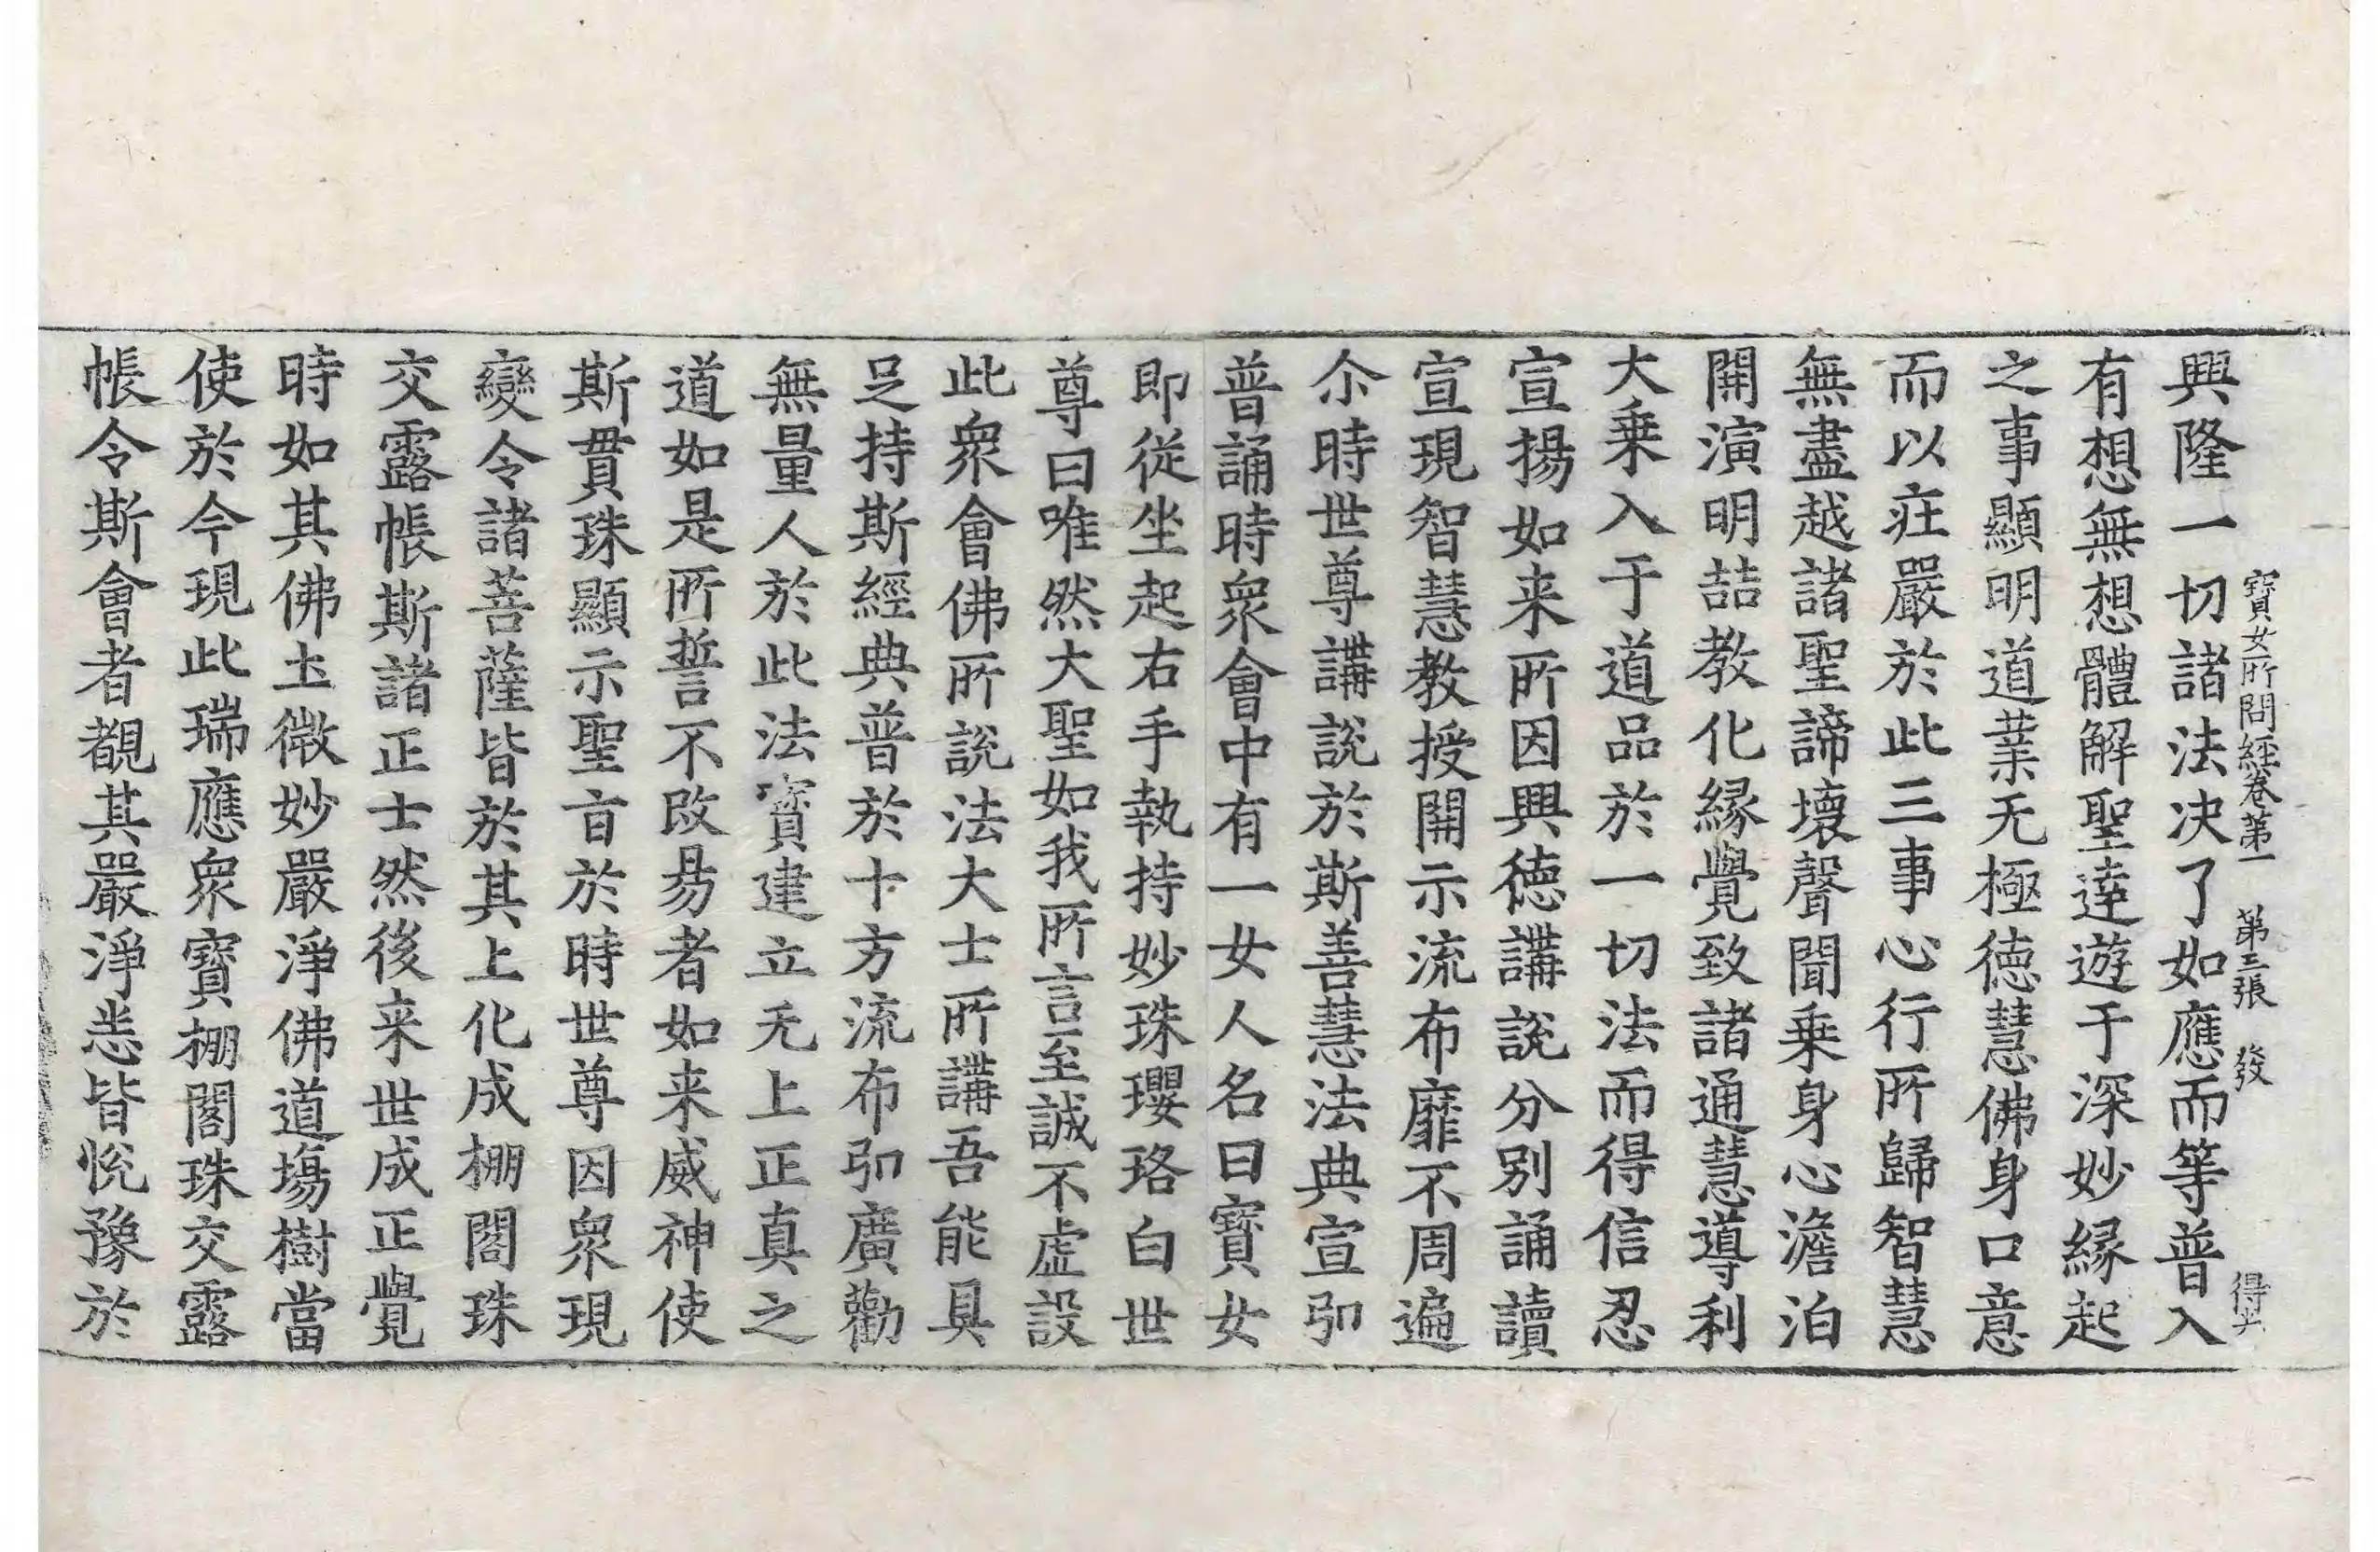 寶女所問經卷第一　第三張　發　得六
興隆一切諸法决了如應而等普入
有想無想體解聖達遊于深妙縁起
之事顯明道業无極德慧佛身口意
而以莊嚴於此三事心行所歸智慧
無盡越諸聖諦壞聲聞乗身心澹泊
開演明喆教化縁覺致諸通慧導利
大乗入于道品於一切法而得信忍
宣揚如来所因興德講說分別誦讀
宣現智慧教授開示流布靡不周遍
尒時世尊講說於斯善慧法典宣引
普誦時衆會中有一女人名曰寶女
即從坐起右手執持妙珠瓔珞白世
尊曰唯然大聖如我所言至誠不虛設
此衆會佛所說法大士所講吾能具
足持斯經典普於十方流布引廣勸
無量人於此法寶建立无上正真之
道如是所誓不改易者如来威神使
斯貫珠顯示聖旨於時世尊因衆現
變令諸菩薩皆於其上化成棚閣珠
交露帳斯諸正士然後来世成正覺
時如其佛土微妙嚴淨佛道塲樹當
使於今現此瑞應衆寶棚閣珠交露
帳令斯會者覩其嚴淨悉皆悅豫於